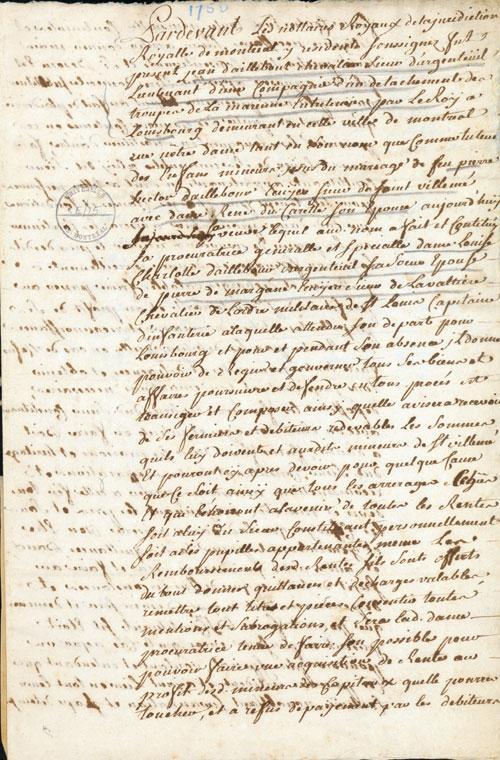 1750
Pardevant Les nottaires Royaux de la juridiction
Royalle de montreal y residents soussignez fut
present jean daillebout chevalier sieur dargenteuil
Lieutenant d'une Compagnie d'un detachement des
troupes de La marinne Entretenues par Le Roy a
Louisbourg demeurant en cette ville de montreal
rue nôtre dame tant en son nom que Comme tuteur
des Enfans mineurs issus du mariage de feu pierre
hector daillebout Ecuyer sieur de saint villemé
avec dame Rene du Carette son Epouse aujourd'huy
sa veuve Lequel aud. nom a fait et Constitué
sa procuratrice generalle et specialle dame Louise
Charlotte daillebout dargenteuil sa Soeur Epouse
de pierre de margane Ecuyer sieur de Lavaltrie
Chevalier de Lordre militaire de St Louis Capitaine
d'infanterie a laquelle attendu son depart pour
Louisbourg et pour et pendant son absence, Il donne
pouvoir de regir et gouverner tous ses biens et
affaires poursuivre et defendre en tous procés et
transiger et Composer ainsy quelle avisera recevoir
de ses fermiers et debiteurs redevables Les Sommes
qu'ils luy doivent et ausdits mineurs de St villemé
Et pouront cy apres devoir pour quelque Cause
que Ce soit ainsy que tous les arrerages
Et qui Echeront a lavenir de toutes les Rentes
soit celuy du Sieur Constituant personnellement
soit a ses pupilles appartenantes meme Les
Remboursements des Rentes sils sont offerts
du tout donner quittances et decharges valables
remettre tout titres et pieces Consentir toutes
mentions et Subrogations, et sera lad. dame
procuratrice tenue de faire son possible pour
pouvoir faire une acquisition de Rente au
profit desd. mineurs des Capitaux quelle pourra
toucher, et a refus de payement par les debiteurs